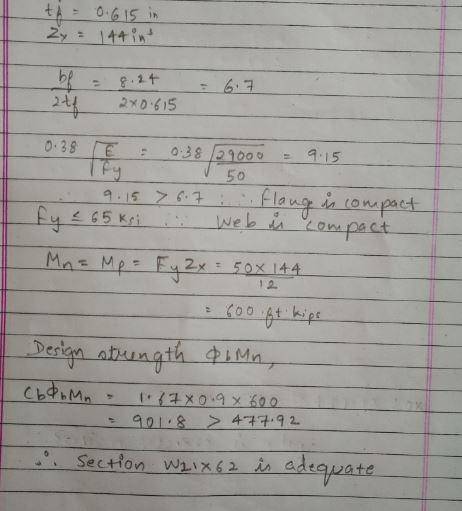 tf = 0.615 in
Zx = 144 in³
bf / 2tf = 8.24 / 2×0.615 = 6.7
0.38 √(E / Fy) = 0.38 √(29000 / 50) = 9.15
∴ 9.15 > 6.7 ∴ flange is compact
Fy ≤ 65 Ksi ∴ Web is compact
Mn = Mp = Fy Zx = 50×144 / 12
= 600 ft. kips
Design strength ΦbMn,
CbΦbMn = 1.67×0.9×600
= 901.8 > 477.92
∴ Section W21×62 is adequate